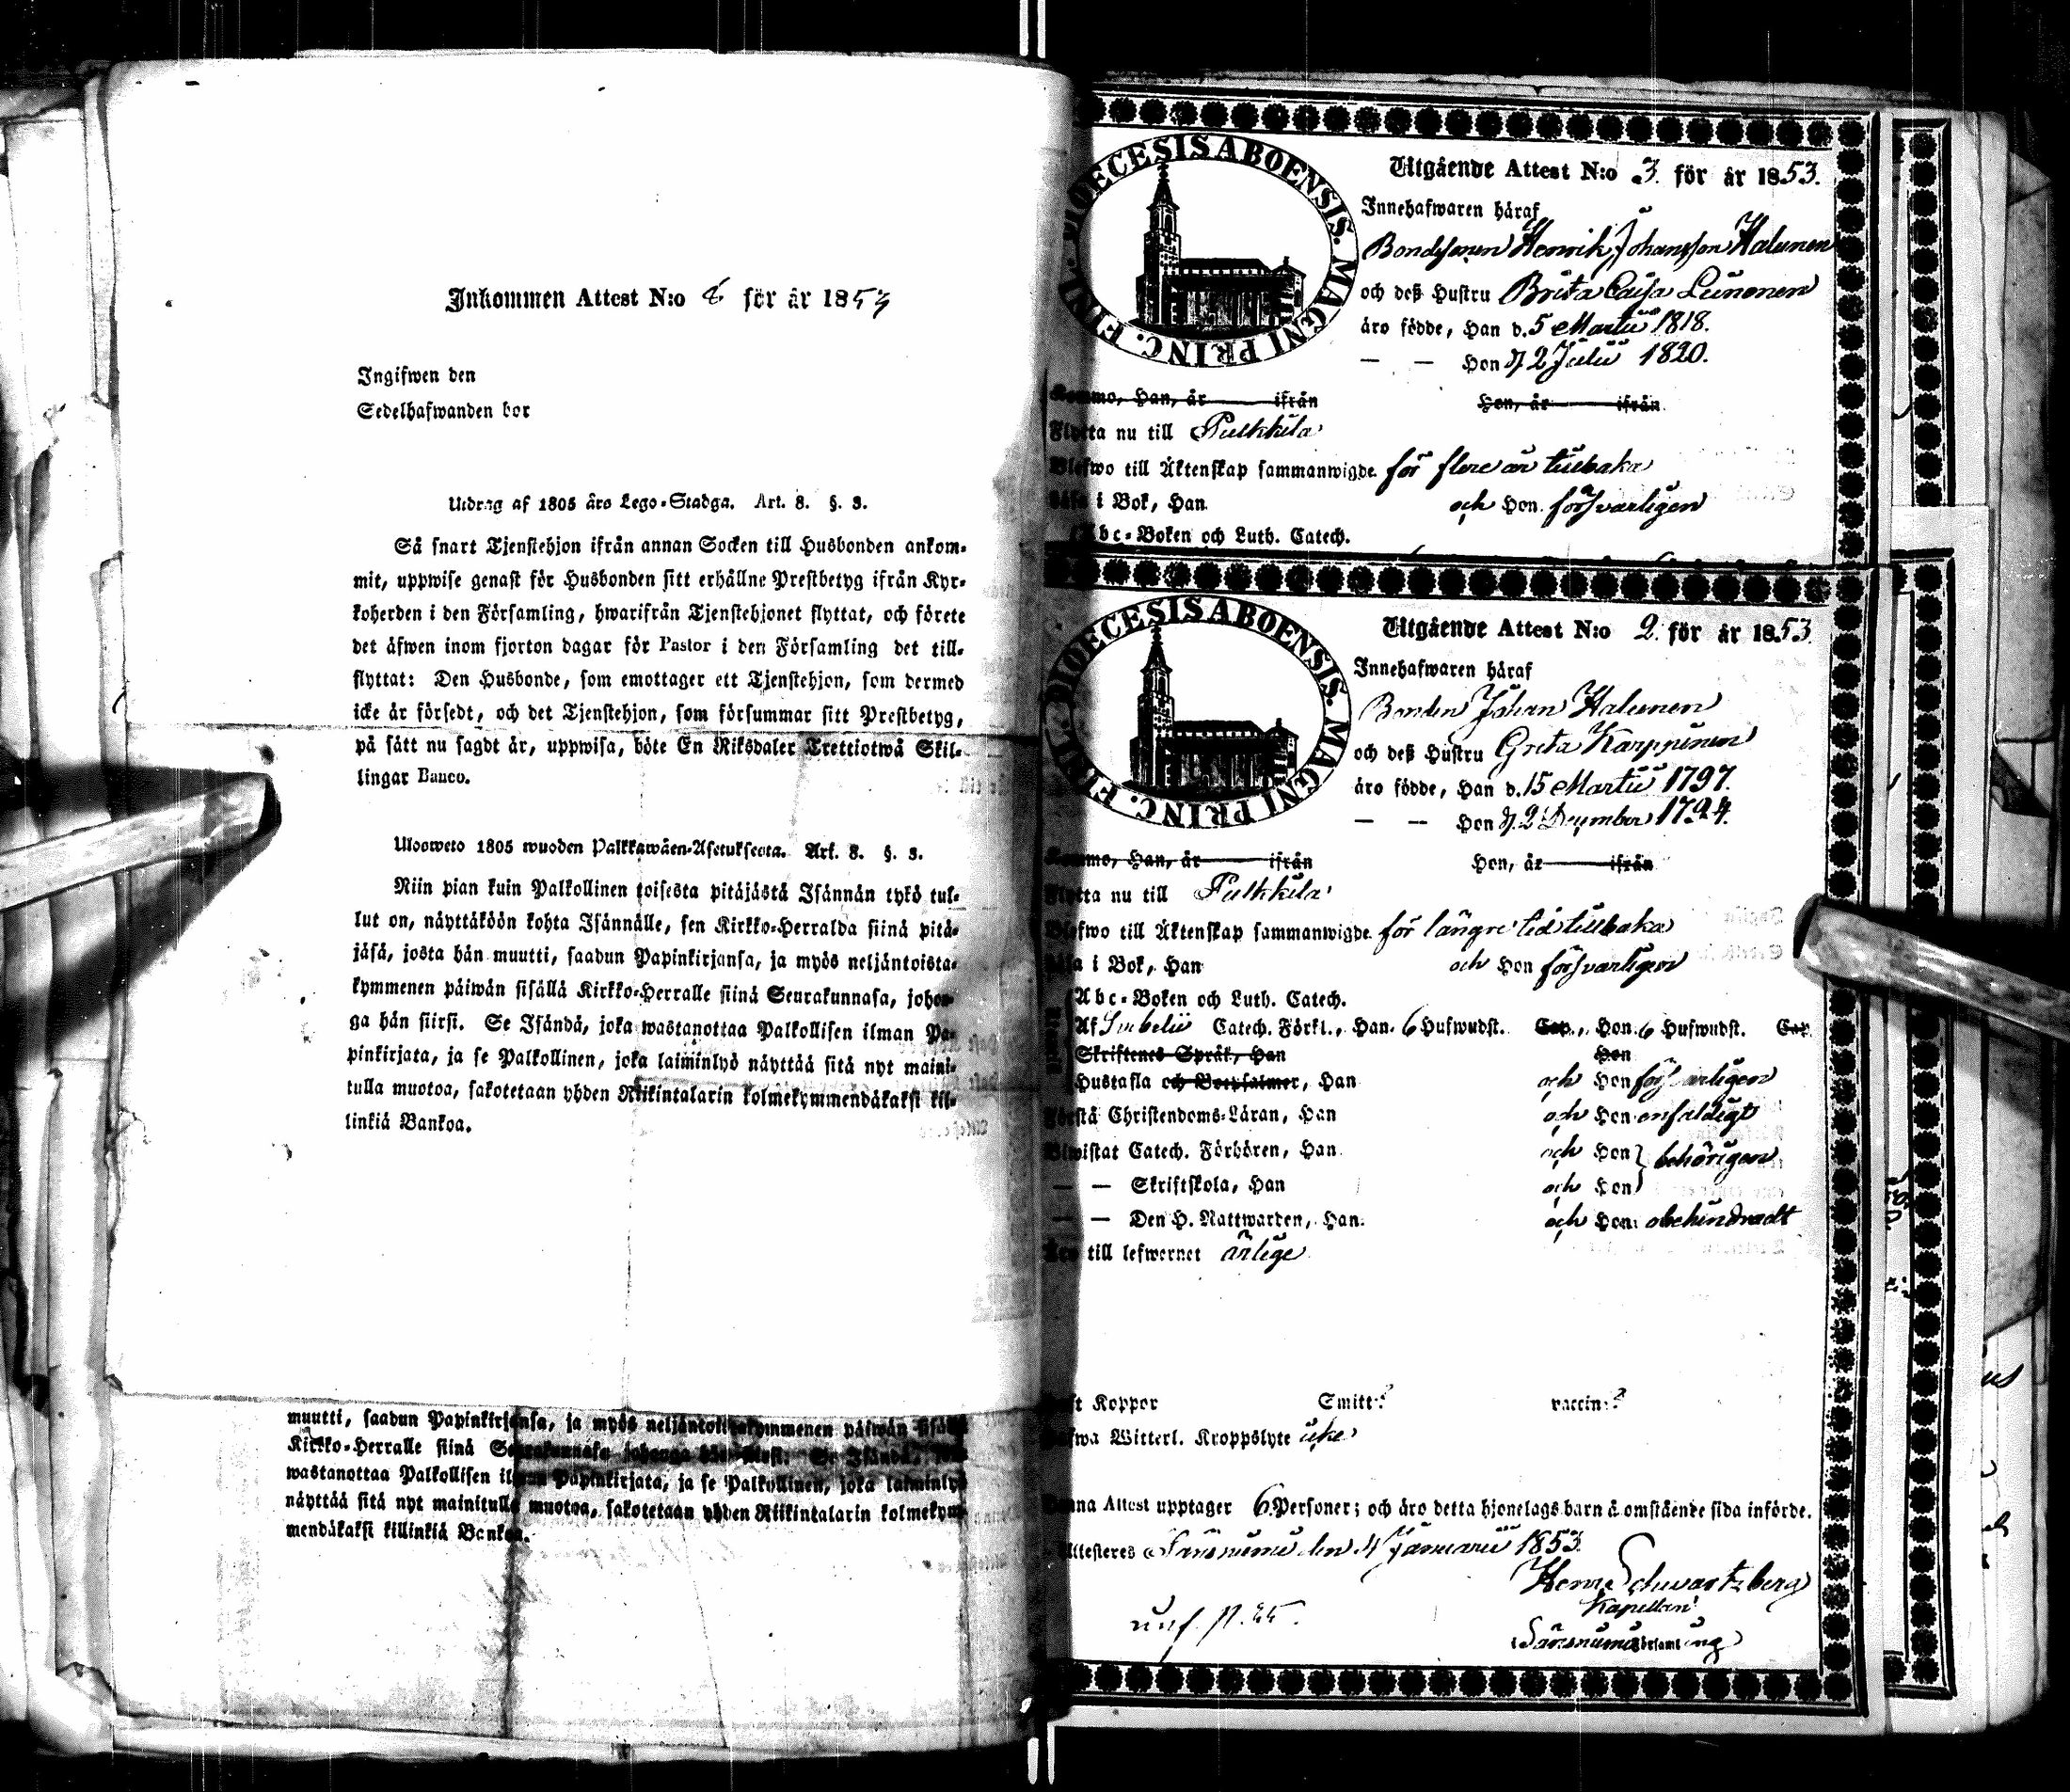 Inkommen Attest N:o för år 1853
Ingifwen den
Sedelhafwanden bor
Utdrag af 1805 åro Lego-Stadga. Art. 8. §. 3.
Så snart Tjenstehjon ifrån annan Socken till Husbonden ankom-
mit, uppwise genast för Husbonden sitt erhållne Prestbetyg ifrån Kyr-
koherden i den Församling, hwarifrån Tjenstehjonet flyttat, och förete
det äfwen inom fjorton dagar för Pastor i den Församling det till-
flyttat: Den Husbonde, som emottager ett Tjenstehjon, som dermed
icke är försedt, och det Tjenstehjon, som försummar sitt Prestbetyg,
på sätt nu sagdt är, uppwisa, böte En Riksdaler Trettiotwå Skil-
lingar Banco.
Uloosweto 1805 wuoden Palkkawäen-Asetuksesta. Art. 8. §. 3.
Niin pian kuin Palkollinen toisesta pitäjästä Isännän tykö tul-
lut on, näyttäköön kohta Isännälle, sen Kirkko-Herralda siinä pitä-
jäsä, josta hän muutti, saadun Papinkirjansa, ja myös neljäntoista-
kymmenen päiwän sisällä Kirkko-Herralle siinä Seurakunnasa, johon-
ga hän siirsi. Se Isändä, joka wastanottaa Palkollisen ilman Pa-
pinkirjata, ja se Palkollinen, joka laiminlyö näyttää sitä nyt maini-
tulla muotoa, sakotetaan yhden Riikintalarin kolmekymmendäkaksi kil-
linkiä Bankoa.
muutti, saadun Papinkirjansa, ja myös neljäntoistakymmenen päiwän sisällä
Kirkko-Herralle siinä Seurakunnasa johonga hän siirsi. Se Isändä, joka
wastanottaa Palkollisen ilman Papinkirjata, ja se Palkollinen, joka laiminlyö
näyttää sitä nyt mainitulla muotoa, sakotetaan yhden Riikintalarin kolmekym-
mendäkaksi killinkiä Bankoa.
DIOECESIS ABOENSIS. MAGNI PRINC. FINL.
Utgående Attest N:o 3. för år 1853.
Innehafwaren häraf
Bondesonen Henrik Johansson Halunen
och deß Hustru Brita Caisa Leinonen
äro födde, Han d. 5 Martii 1818.
— — Hon d. 2 Julii 1820.
Kommo, Han, år ifrån Hon, år ifrån
Flytta nu till Pulkkila
Blefwo till Äktenskap sammanwigde för flere år tillbaka
Läsa i Bok, Han och Hon försvarligen
Abc-Boken och Luth. Catech.
DIOECESIS ABOENSIS. MAGNI PRINC. FINL.
Utgående Attest N:o 2. för år 1853
Innehafwaren häraf
Bonden Johan Halunen
och deß Hustru Greta Karppinen
äro födde, Han d. 15 Martii 1797.
— — Hon d. 2 December 1794.
Kommo, Han, år ifrån Hon, år ifrån
Flytta nu till Pulkkila
Blefwo till Äktenskap sammanwigde för längre tid tillbaka
Läsa i Bok, Han och Hon försvarligen
Abc-Boken och Luth. Catech.
Af Svebelii Catech. Förkl., Han 6 Hufwudst. Cap., Hon 6 Hufwudst. Cap.
Skriftenes Språk, Han Hon
Hustafla och Botpsalmer, Han och Hon försvarligen
Förstå Christendoms-Läran, Han och Hon enfaldigt
Biwistat Catech. Förhören, Han och Hon behörigen
— — Skriftskola, Han och Hon
— — Den H. Nattwarden, Han och Hon obehindradt
Äro till lefwernet ärlige
Haft Koppor Smitt. vaccin.
Hafwa Witterl. Kroppslyte icke
Denna Attest upptager 6 Personer; och äro detta hjonelags barn å omstående sida införde.
Attesteres Säresniemi den Januarii 1853.
Henr. Schwartzberg
Kapellan
Säresniemi församling